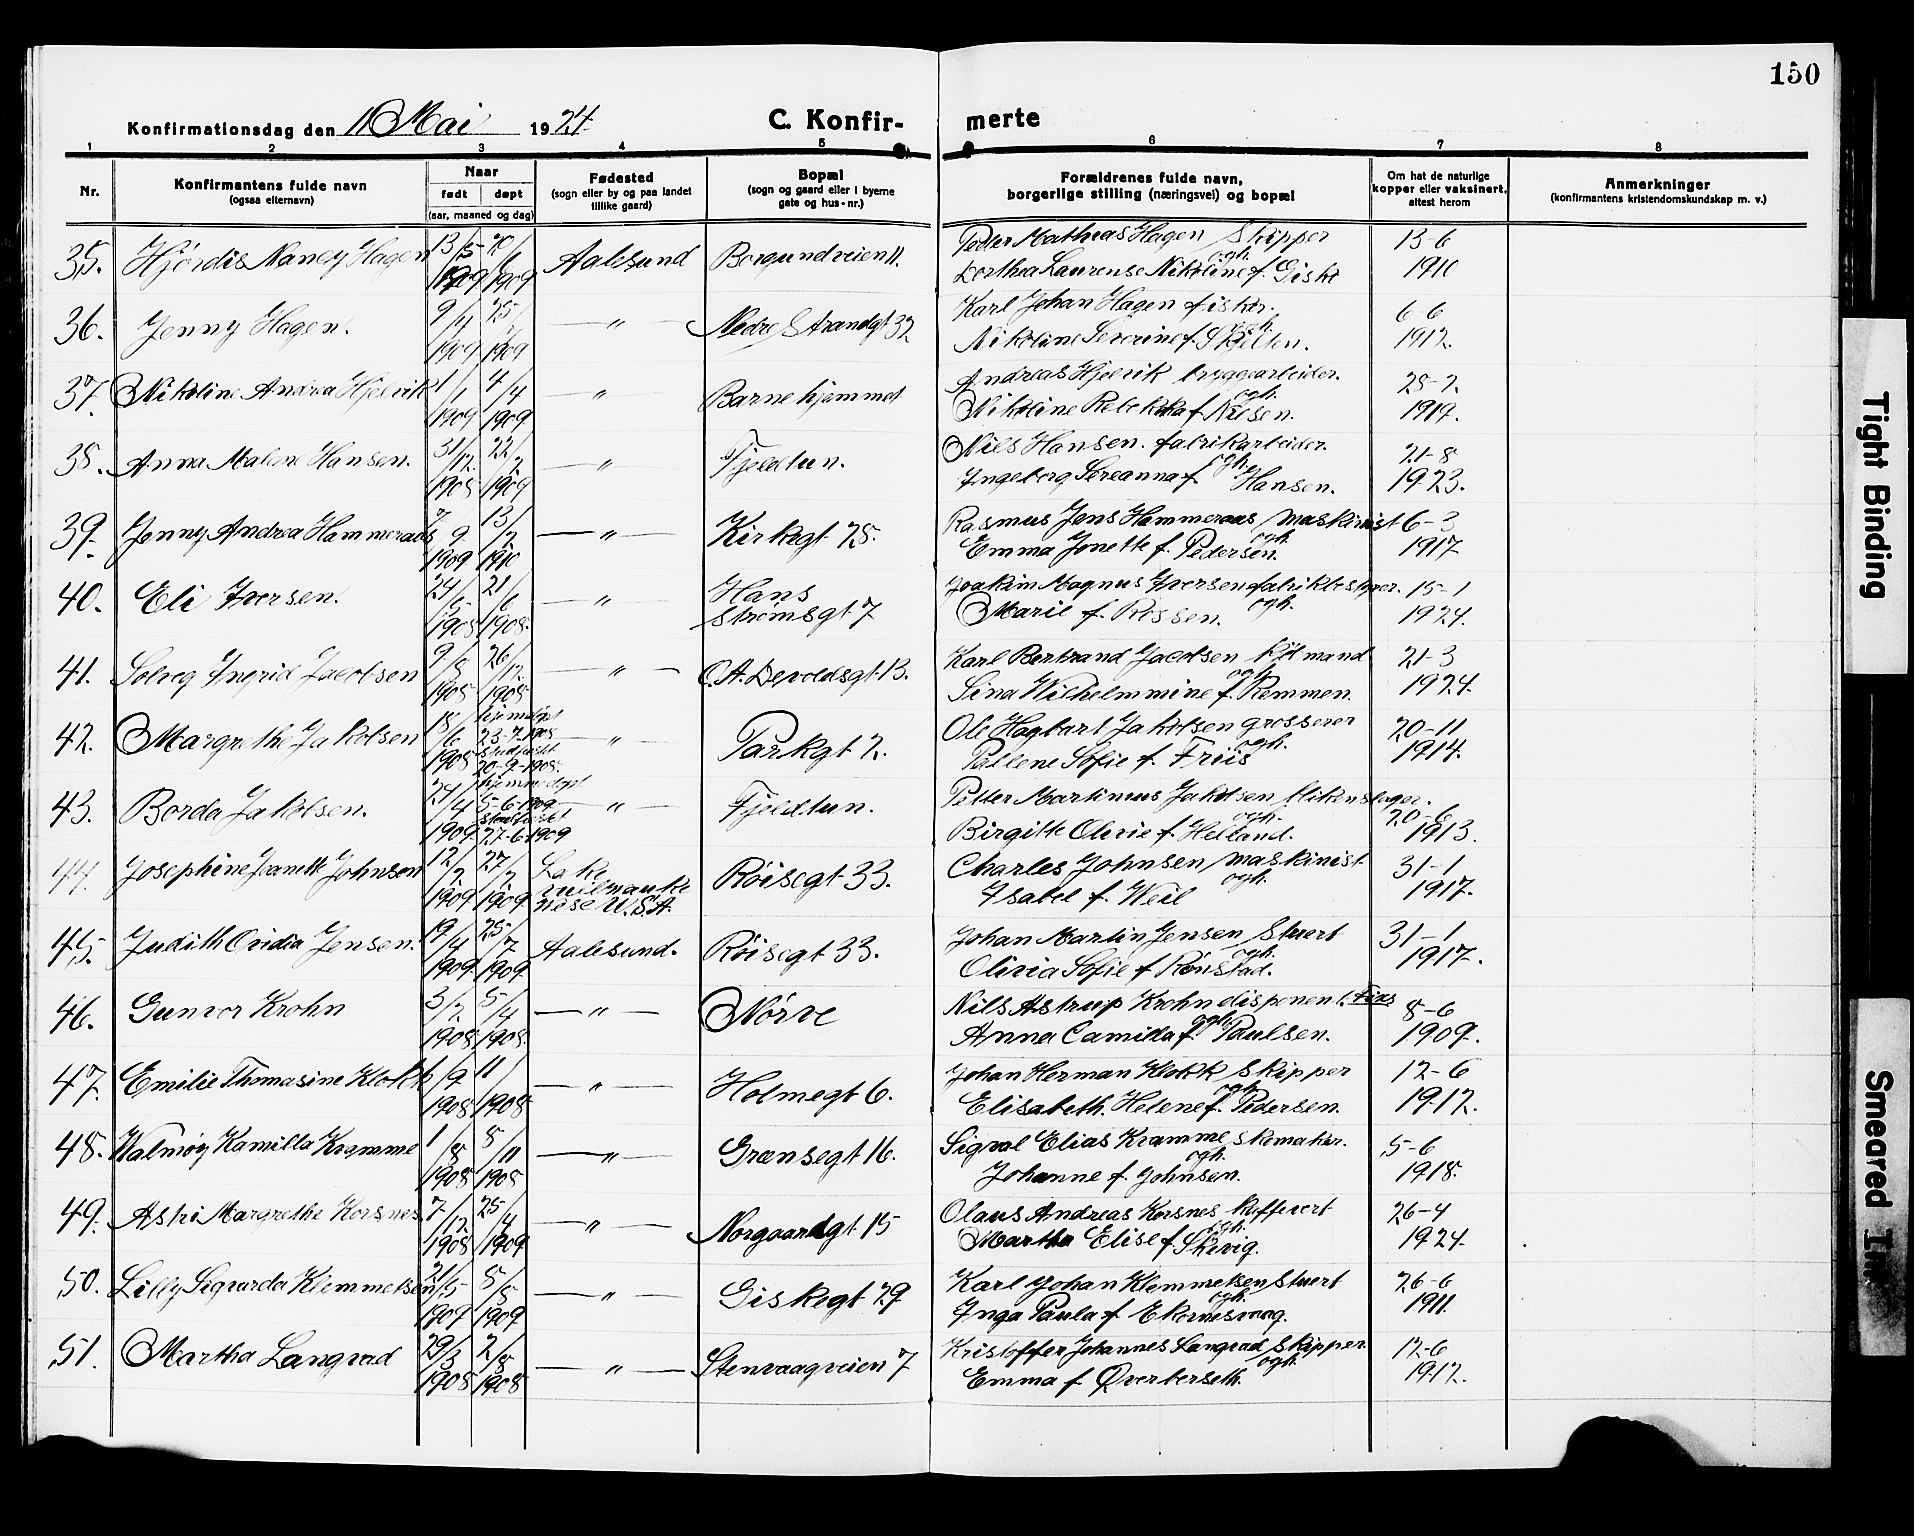 150
Konfirmationsdag den 11 Mai 1924. C. Konfir- merte
1 2 3 4 5 6 7 8
Nr. Konfirmantens fulde navn (ogsaa efternavn) Naar født døpt (aar, maaned og dag) Fødested (sogn eller by og paa landet tillike gaard) Bopæl (sogn og gaard eller i byerne gate og hus-nr.) Forældrenes fulde navn, borgerlige stilling (næringsvei) og bopæl Om hat de naturlige kopper eller vaksinert, attest herom Anmerkninger (konfirmantens kristendomskundskap m. v.)
35. Hjördis Nancy Hagen 13/5 1909 20/6 1909 Aalesund Borgundveien 11. Peder Mathias Hagen skipper ogh. Dorthea Laurense Nikoline f. Giske 13-6 1910
36. Jenny Hagen. 9/4 1909 25/7 1909 —"— Nedre Strandgt 32 Karl Johan Hagen fisker. ogh. Nikoline Severine f. Skjelten. 6-6 1912.
37. Nikoline Andrea Hjelvik 1/1 1909 4/4 1909 —"— Barnehjemmet Andreas Hjelvik bryggearbeider. ogh. Nikoline Rebekka f. Nilsen. 25-2. 1919.
38. Anna Malene Hansen. 31/12. 1908 22/2 1909 —"— Fjeldtun. Nils Hansen. fabrikarbeider. ogh. Ingeborg Sereanna f. Hansen. 21-8 1923.
39. Jenny Andrea Hammeraas 7/9 1909 13/2 1910 —"— Kirkegt 25. Rasmus Jens Hammeraas maskinist ogh. Emma Jonette f. Pedersen. 6-3 1917
40. Eli Iversen. 24/5 1908 21/6 1908. —"— Hans Strömsgt 7 Joakim Magnus Iversen fabrikbestyrer. ogh. Marie f. Rossen. 15-1 1924.
41. Solveg Ingrid Jacobsen 9/8 1908 26/12. 1908. —"— O. A. Devoldsgt. 13. Karl Bertrand Jacobsen kjöbmand ogh. Sina Wilhelmmine f. Remmen. 21-3 1924.
42. Margrethe Jakobsen 18/6 1908 hjemdöpt 23-7-1908 stadfæstet 20-9-1908. —"— Parkgt 2. Ole Hagbart Jakobsen grosserer ogh. Pallene Sofie f. Friis 20-11 1914.
43. Borda Jakobsen. 27/4 1909 hjemmedöpt 5-6-1909. stadfæstet 27-6-1909 —"— Fjeldtun. Petter Martinius Jakobsen blikenslager. ogh. Birgitte Olivie f. Helland. 20-6 1913.
44. Josephine Jeanette Johnsen 12/2 1909 27/2 1909. Lake U. S. A. Röisegt 33. Charles Johnsen maskinist. ogh. Isabel f. Weil 31-1 1917.
45. Judith Ovidia Jensen. 19/4 1909. 25/7 1909. Aalesund. Röisegt 33. Johan Martin Jensen Stuert ogh. Olivia Sofie f. Rönstad. 31-1 1917.
46. Gunvor Krohn 3/2 1908 5/4 1908. —"— Nörve Nils Astrup Krohn disponent. ogh. Anna Camilla f. Paulsen. 8-6 1909.
47. Emilie Thomasine Klokk 6/9 1908 11/ 1908. —"— Holmegt 6. Johan Herman Klokk skipper ogh. Elisabeth. Helene f. Pedersen. 12-6 1912.
48. Walmöy Kamilla Kramme 1/8 1908 8/11 1908 —"— Grænsegt 16. Sigval Elias Kramme skomaker. ogh. Johanne f. Johnsen. 5-6 1918.
49. Astri Margrethe Korsnes 7/12. 1908 25/4 1909 —"— Norgaardgt 15 Olaus Andreas Korsnes kaffevert ogh. Martha Elise f. Skivig. 26-4 1924.
50. Lilly Sigvarda Klemmetsen 21/5 1909 8/8 1909 —"— Giskegt 29 Karl Johan Klemmetsen Stuert ogh. Inga Paula f. Ekornesvaag. 26-6 1911.
51. Martha Langvad 29/3 1908 2/8 1908 —"— Stenvaagveien 7 Kristoffer Johannes Langvad skipper ogh. Emma f. Överberseth. 12-6 1912.
Tight Binding
Smeared Ink